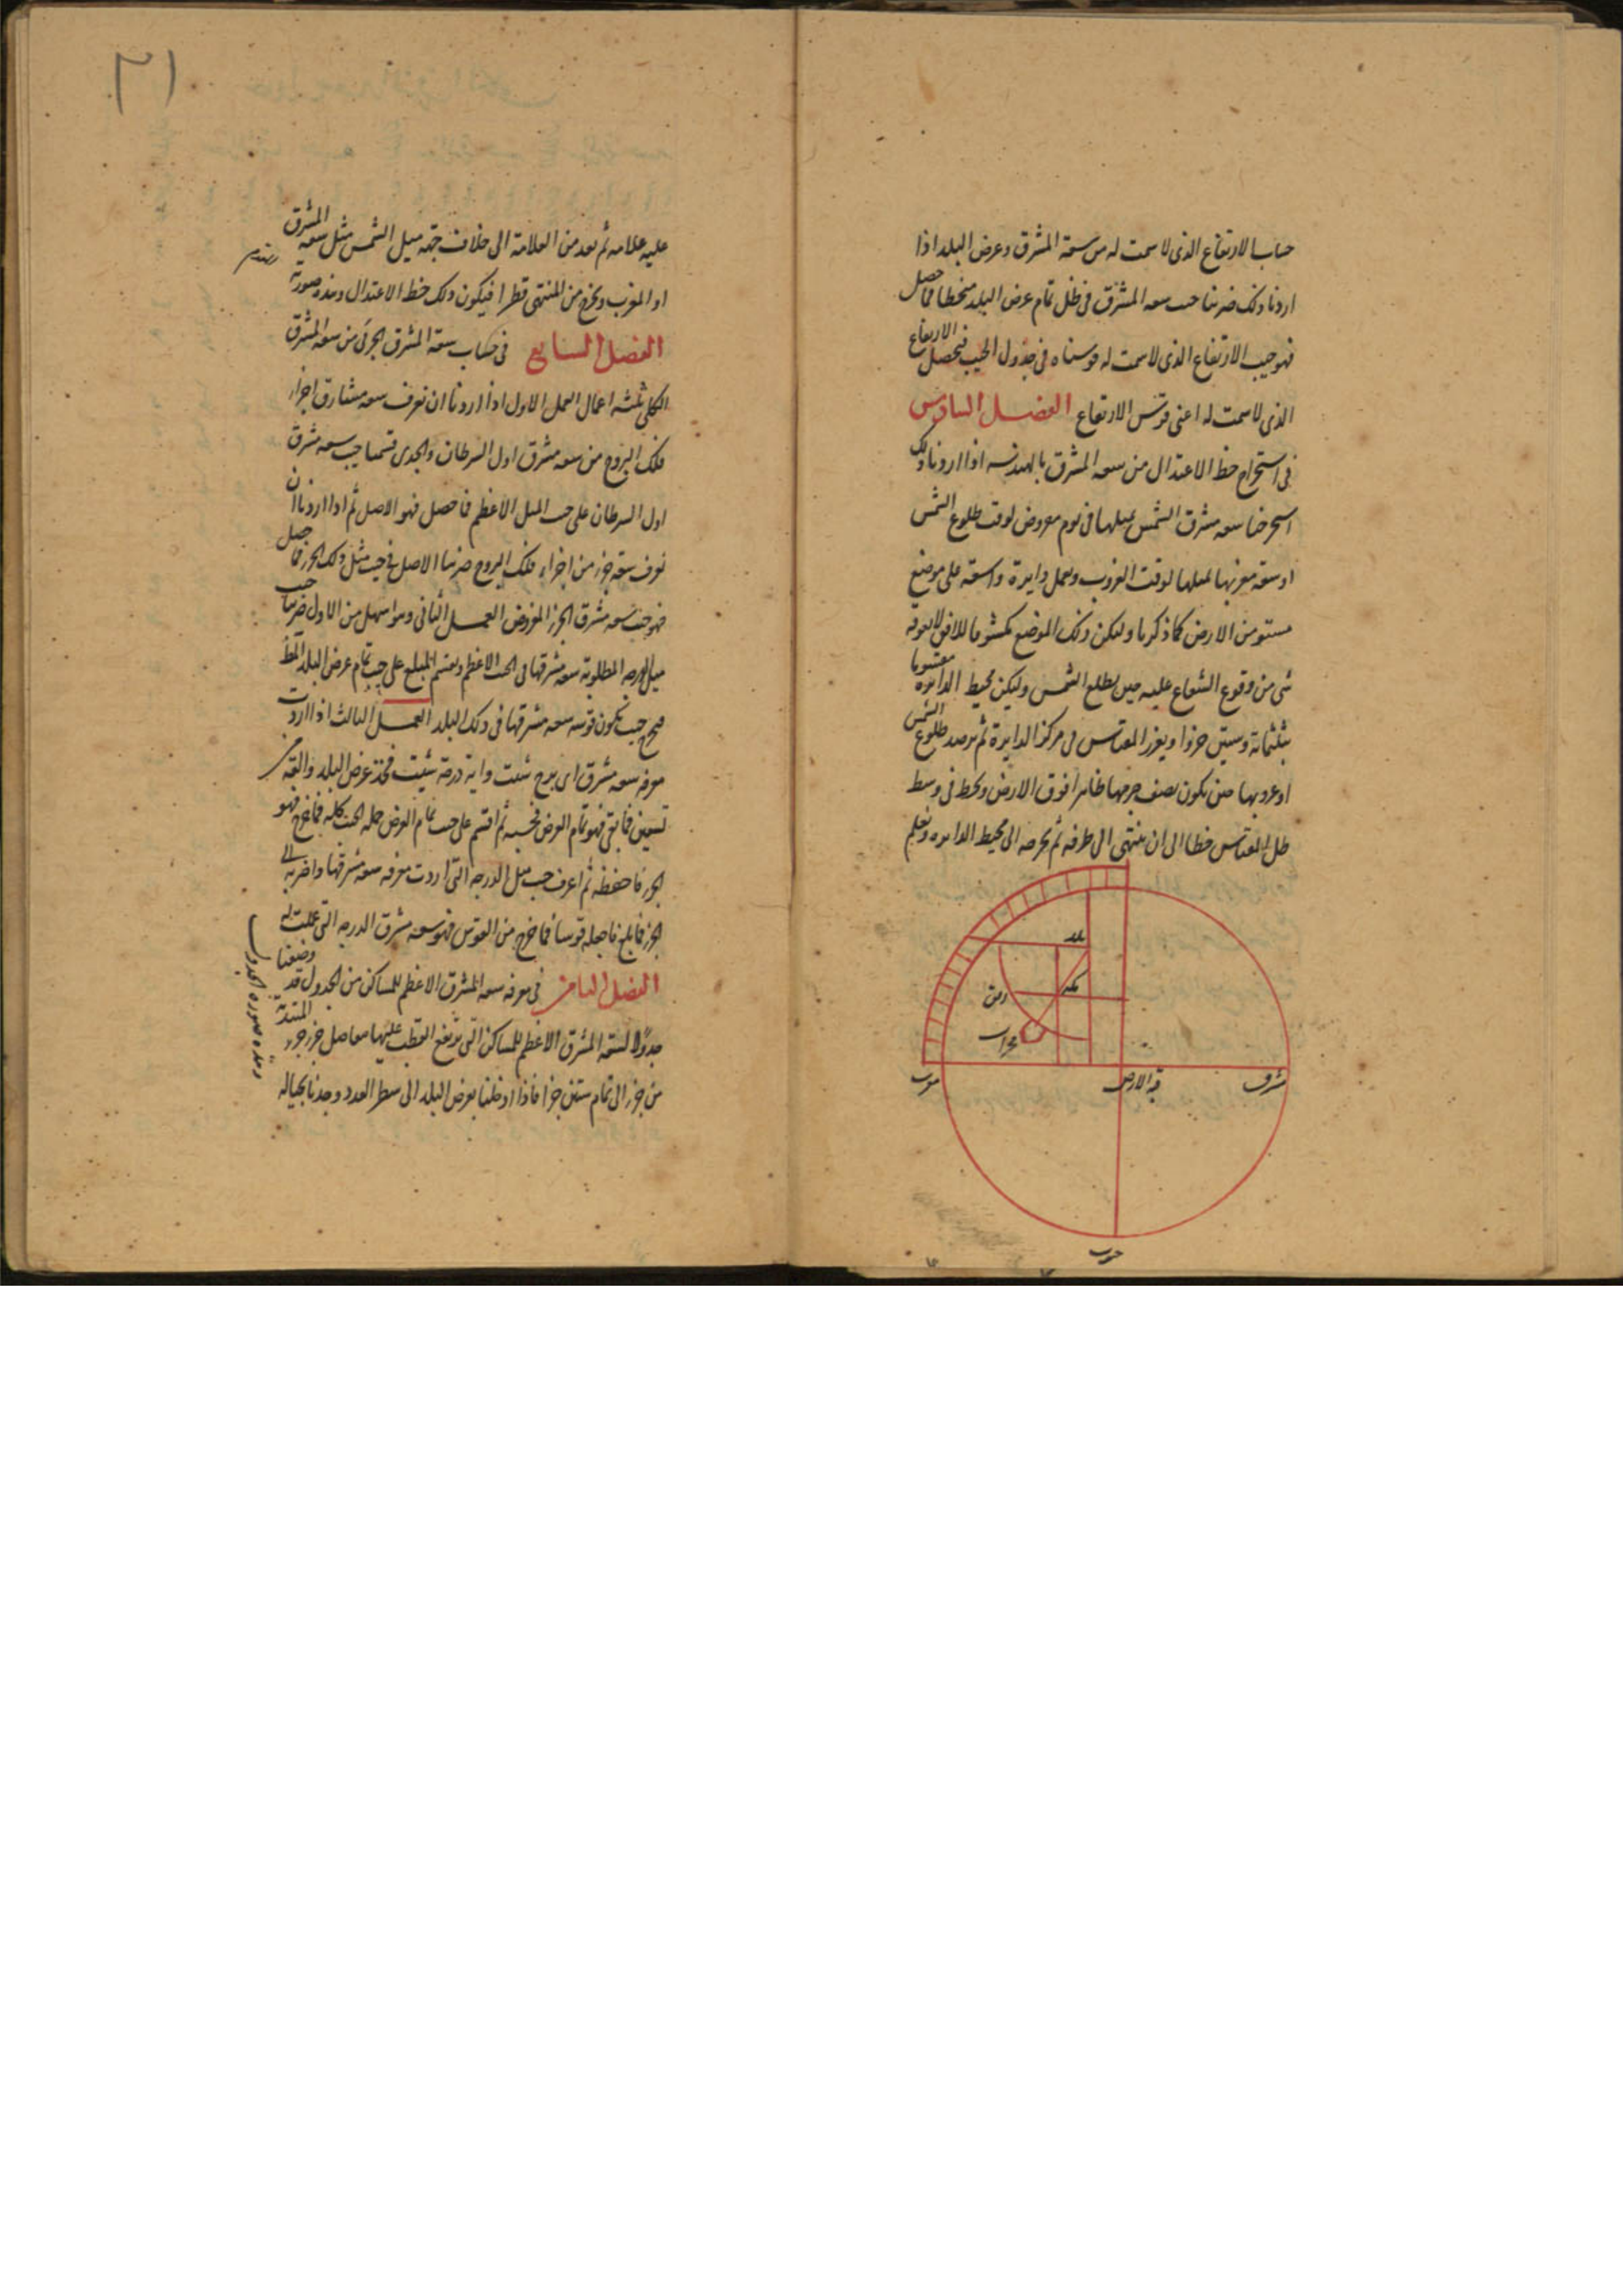 حساب الارتفاع الذى لا سمت له من سعة المشرق وعرض البلد اذا
اردنا ذلك ضربنا جيب سعه المشرق فى ظل تمام عرض البلد منحطا فما حصل
فهو جيب الارتفاع الذى لا سمت له قوسناه فى جدول الجيب فيحصل الارتفاع
الذى لا سمت له اعنى قوس الارتفاع الفصل السادس
فى استخراج خط الاعتدال من سعه المشرق بالهندسه اذا اردنا ذلك
استخرجنا سعه مشرق الشمس لميلها فى يوم مفروض لوقت طلوع الشمس
او سعة مغربها لميلها لوقت الغروب ونعمل دايرة واسعة على موضع
مستو من الارض كما ذكرنا وليكن ذلك الموضع مكشوفا للافق لا يعوقه
شى من وقوع الشعاع عليه حين يطلع الشمس وليكن محيط الدايره مقسوما
بثلثماية وستين جزوا ويغرز المقياس فى مركز الدايرة ثم يرصد طلوع الشمس
او غروبها حين يكون نصف جرمها ظاهرا فوق الارض ونخط فى وسط
ظل المقياس خطا الى ان ينتهى الى طرفه ثم نخرجه الى محيط الدايره ونعلم
بلد
مكه
محراب
مشرق
قبة الارض
مغرب
جنوب
١٦
عليه علامه ثم نعد من العلامة الى خلاف جهة ميل الشمس مثل سعة المشرق
او المغرب ونخرج من المنتهى قطرا فيكون ذلك خط الاعتدال وهذه صورته
الفصل السابع فى حساب سعة المشرق الجزئى من سعه المشرق
الكلى ثلثه اعمال العمل الاول اذا اردنا ان نعرف سعه مشارق اجزاء
فلك البروج من سعه مشرق اول السرطان والجدى قسمنا جيب سعه مشرق
اول السرطان على جيب الميل الاعظم فما حصل فهو الاصل ثم اذا اردنا ان
نعرف سعة جزء من اجزاء فلك البروج ضربنا الاصل فى جيب ميل ذلك الجزء فما حصل
فهو جيب سعه مشرق الجزء المفروض العمل الثانى وهو اسهل من الاول ضربنا جيب
ميل الدرجه المطلوبة سعه مشرقها فى الجيب الاعظم ونقسم المبلغ على جيب تمام عرض البلد
فيخرج جيب يكون قوسه سعه مشرقها فى ذلك البلد العمل الثالث اذا اردت
معرفه سعه مشرق اى برج شئت واية درجة شئت فخذ عرض البلد والقه من
تسعين فما بقى فهو تمام العرض فجيبه ثم اقسم على جيب تمام العرض جمله الجيب كله فما خرج فهو
الجزء فاحفظه ثم اعرف جيب ميل الدرجه التى اردت معرفه سعه مشرقها واضربه فى
الجزء فما بلغ فاجعله قوسا فما خرج من القوس فهو سعه مشرق الدرجه التى عملت له
الفصل الثامن فى معرفه سعه المشرق الاعظم للمساكن من الجدول قد وضعنا
جدولا لسعة المشرق الاعظم للمساكن التى يرتفع القطب عليها بتفاضل جزء جزء المبتدئة
من جزء الى تمام ستين جزا فاذا ادخلنا بعرض البلد الى سطر العدد وجدنا بحياله
وهذه صورة الجدول